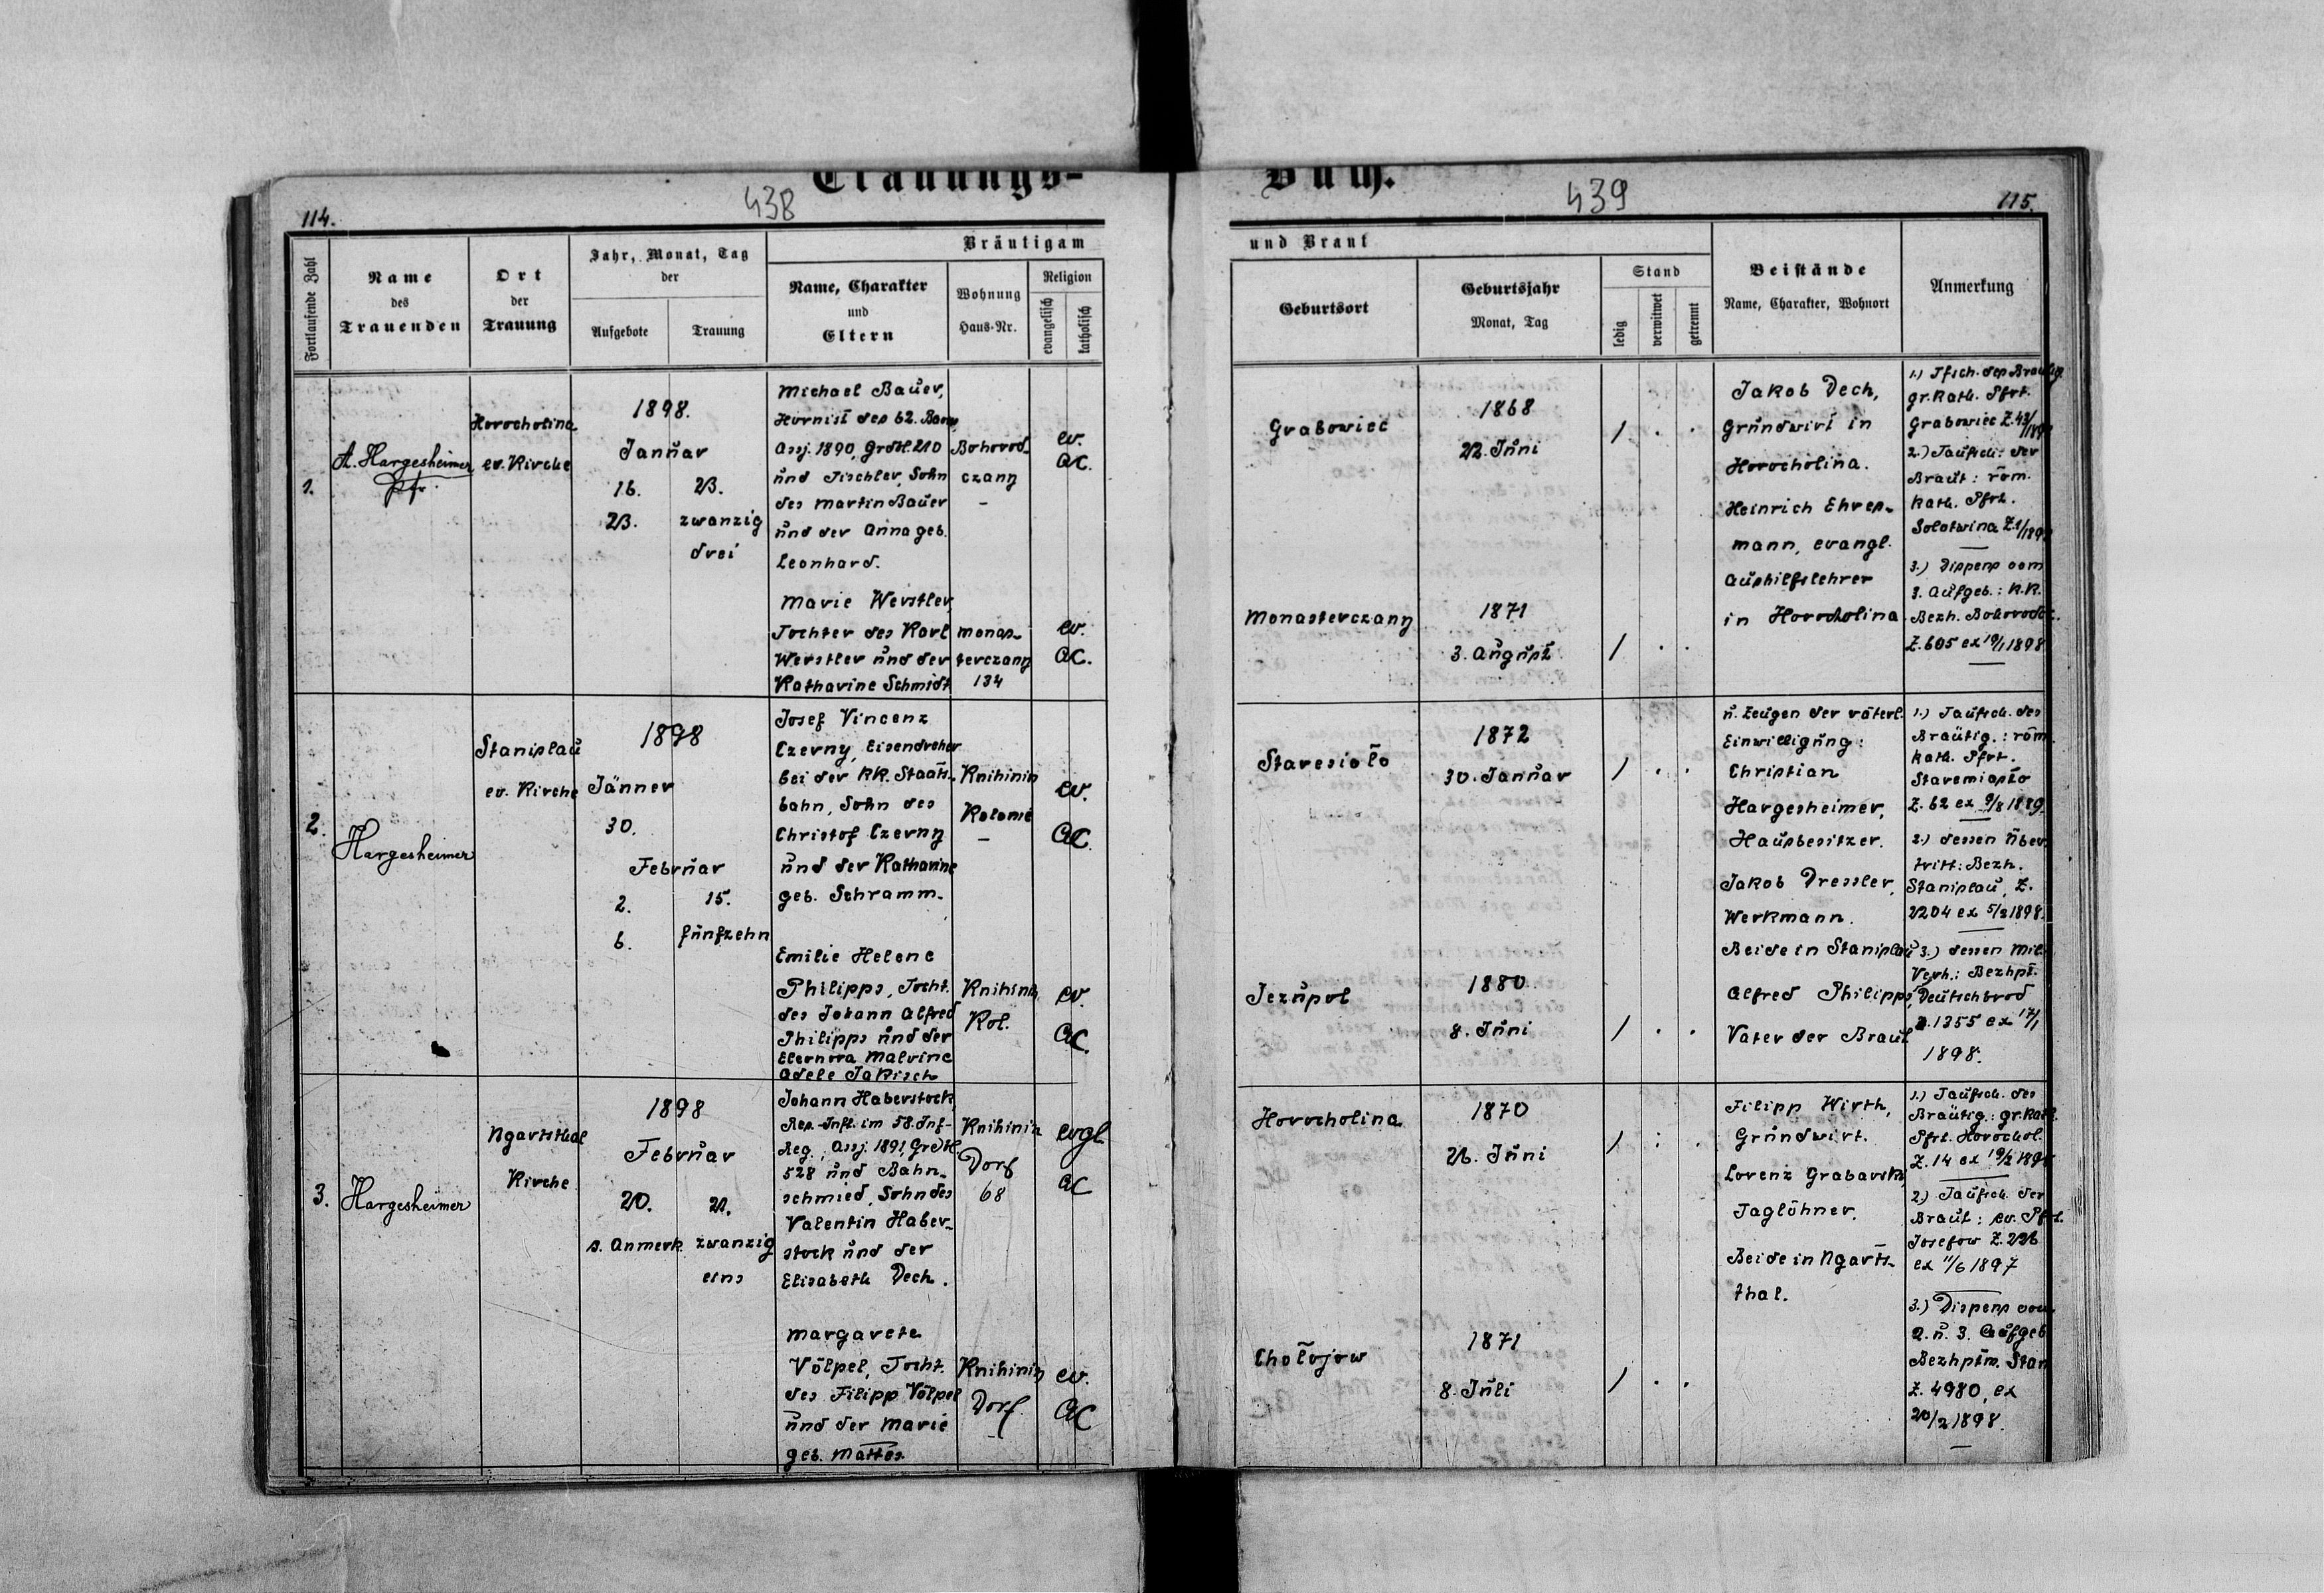 Trauungs-
Buch.
438
439
114.
115.
Fortlaufende Zahl
Name
des
Trauenden
Ort
der
Trauung
Jahr, Monat, Tag
der
Aufgebote
Trauung
Bräutigam
Name, Charakter
und
Eltern
Wohnung
Haus-Nr.
Religion
evangelisch
katholisch
und Braut
Geburtsort
Geburtsjahr
Monat, Tag
Stand
ledig
verwitwet
getrennt
Beistände
Name, Charakter, Wohnort
Anmerkung
1.
A. Hargesheimer
Pfr.
Horocholina
ev. Kirche
1898.
Januar
16.
23.
23.
zwanzig
drei
Michael Bauer,
Hornist des 62. Baon
Assj. 1890, Grdbl. 210
und Tischler, Sohn
des Martin Bauer
und der Anna geb.
Leonhard.
Bohorod-
czany
-
ev.
AC.
Marie Werstler,
Tochter des Karl
Werstler und der
Katharine Schmidt
Monas-
terczany
134
ev.
AC.
Grabowiec
1868
22. Juni
/ . .
Monasterczany
1871
3. August
/ . .
Jakob Dech,
Grundwirt in
Horocholina.
Heinrich Ehres-
mann, evangl.
Aushilfslehrer
in Horocholina.
1.) Tfsch. des Bräutig.
gr. kath. Pfrt.
Grabowiec Z. 43/
2.) Taufsch. der
Braut: röm.
kath. Pfrt.
Solotwina Z. 1/
3.) Dispens vom
3. Aufgeb.: K.K.
Bezh. Bohorodcz.
Z. 605 ex 19/1 1898
2.
Hargesheimer
Stanislau
ev. Kirche
1898
Jänner
30.
Februar
2.
15.
6.
fünfzehn
Josef Vincenz
Czerny, Eisendreher
bei der kk. Staats-
bahn, Sohn des
Christof Czerny
und der Katharine
geb. Schramm.
Knihinin
Kolonie
-
ev.
AC.
Emilie Helene
Philipps, Tocht.
des Johann Alfred
Philipps und der
Eleonora Malvine
Adele Jakisch
Knihinin
Kol.
ev.
AC.
Staresioło
1872
30. Januar
/ . .
Jezupol
1880
8. Juni
/ . .
u. Zeugen der väterl.
Einwilligung:
Christian
Hargesheimer,
Hausbesitzer.
Jakob Dressler,
Werkmann.
Beide in Stanislau
Alfred Philipps,
Vater der Braut
1.) Taufsch. des
Bräutig.: röm.
kath. Pfrt.
Staremiasto
Z. 62 ex 9/8 1889.
2.) dessen Über-
tritt: Bezh.
Stanislau, Z.
2204 ex 5/2 1898.
3.) dessen Mil.
Verh.: Bezhpt.
Deutschbrod
Z. 1355 ex 17/1
1898.
3.
Hargesheimer
Ngartsthal
Kirche
1898
Februar
20.
21.
s. Anmerk.
zwanzig
eins
Johann Haberstock,
Res.-Inft. im 58. Inf-
Reg., Assj. 1891, Grdbl.
528 und Bahn-
schmied, Sohn des
Valentin Haber-
stock und der
Elisabeth Dech.
Knihinin
Dorf
68
evgl
AC
Margarete
Völpel, Tocht.
des Filipp Völpel
und der Marie
geb. Mattes
Knihinin
Dorf
-
ev.
AC
Horocholina
1870
26. Juni
/ : .
Chołojow
1871
8. Juli
/ . .
Filipp Wirth,
Grundwirt.
Lorenz Grabarski,
Taglöhner.
Beide in Ngarts-
thal.
1.) Taufsch. des
Bräutig: gr. Kath.
Pfrt. Horochol.
Z. 14 ex 19/2
2.) Taufsch. der
Braut: ev. Pfrt.
Josefow Z. 226
ex 11/6 1897
3.) Dispens vom
2. u. 3. Aufgeb.
Bezhptm. Stan
Z. 4980, ex
20/2 1898.